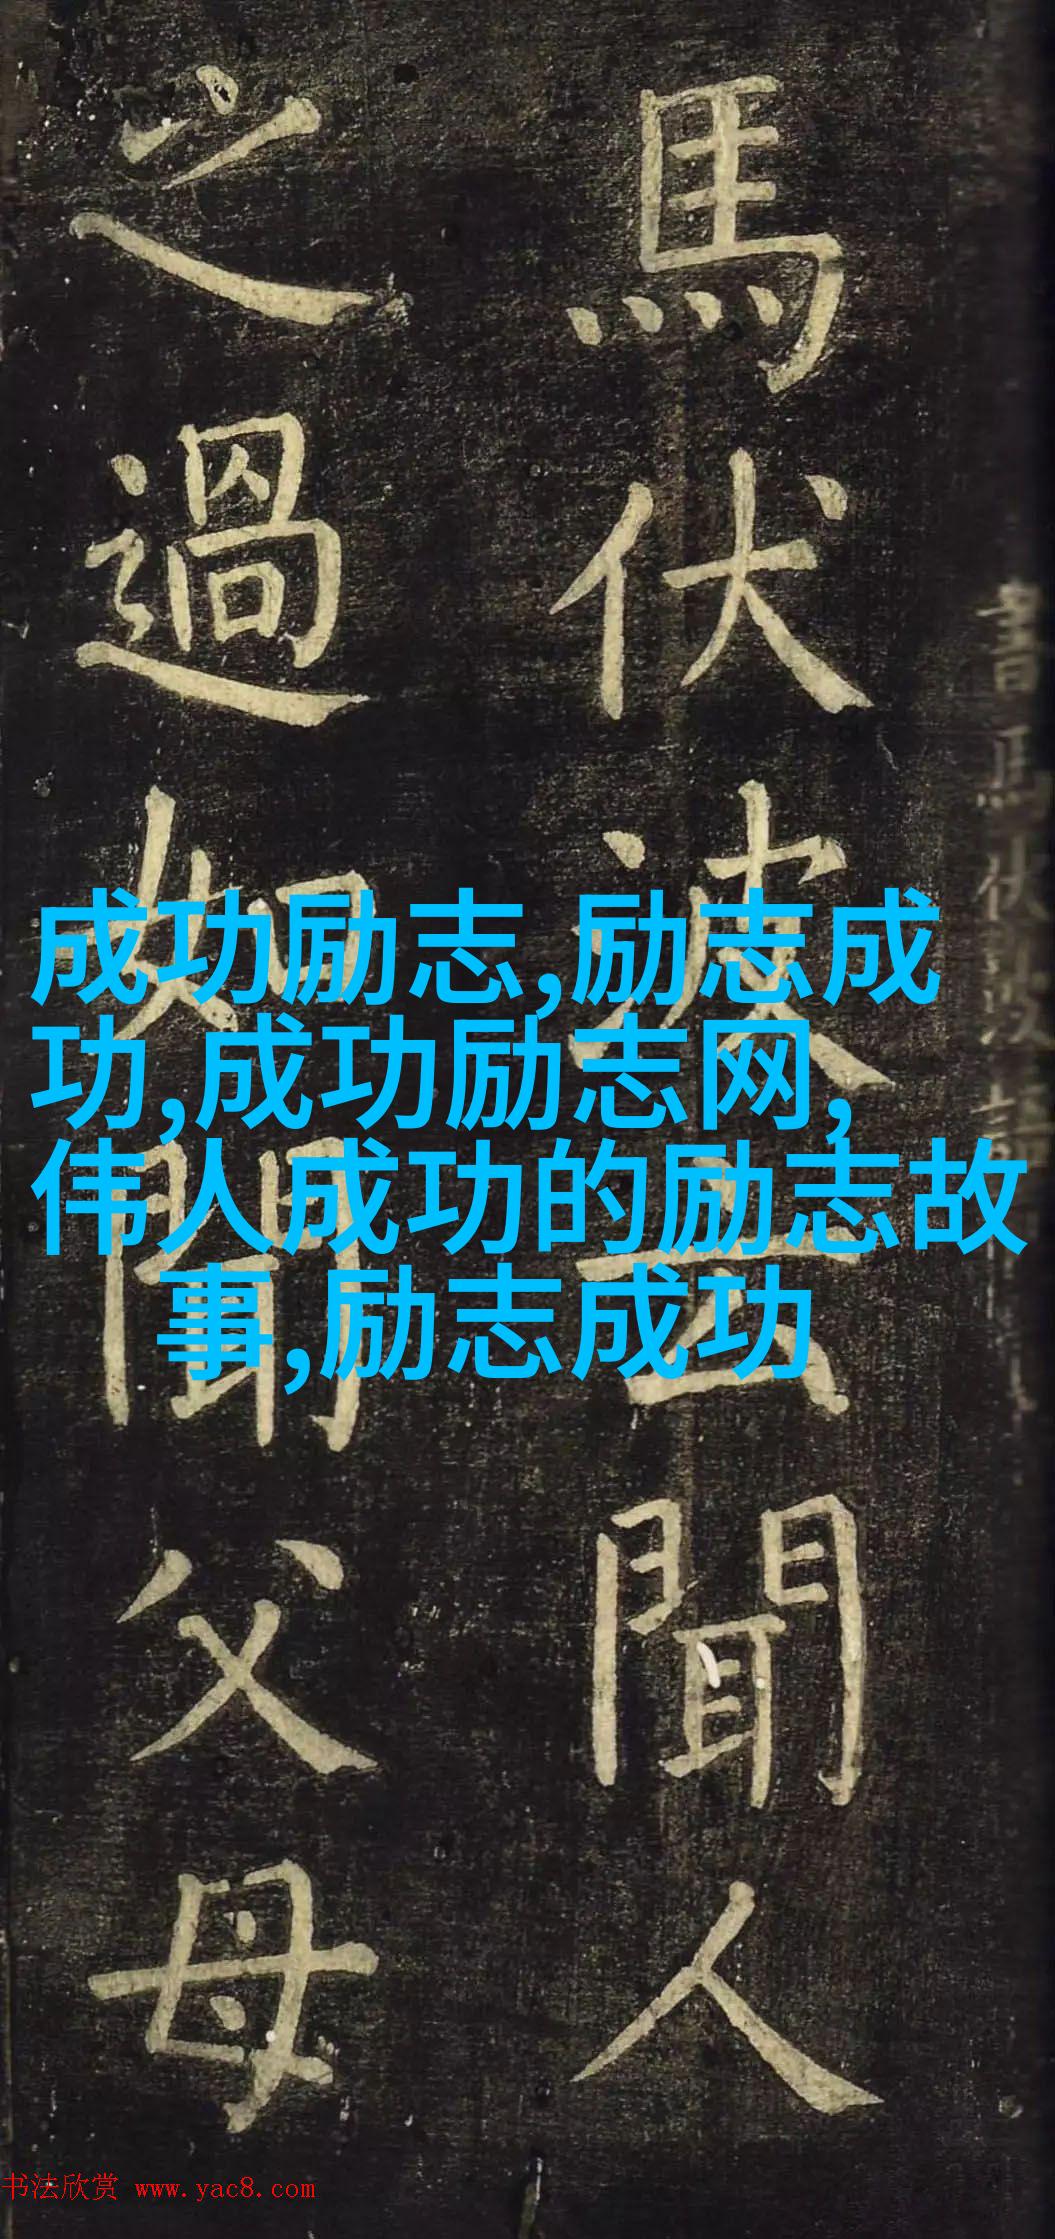 馬伏波云聞人
之過如聞父母
成功励志,励志成
功,成功励志网,
伟人成功的励志故
事,励志成功
书法欣赏 www.yac8.com